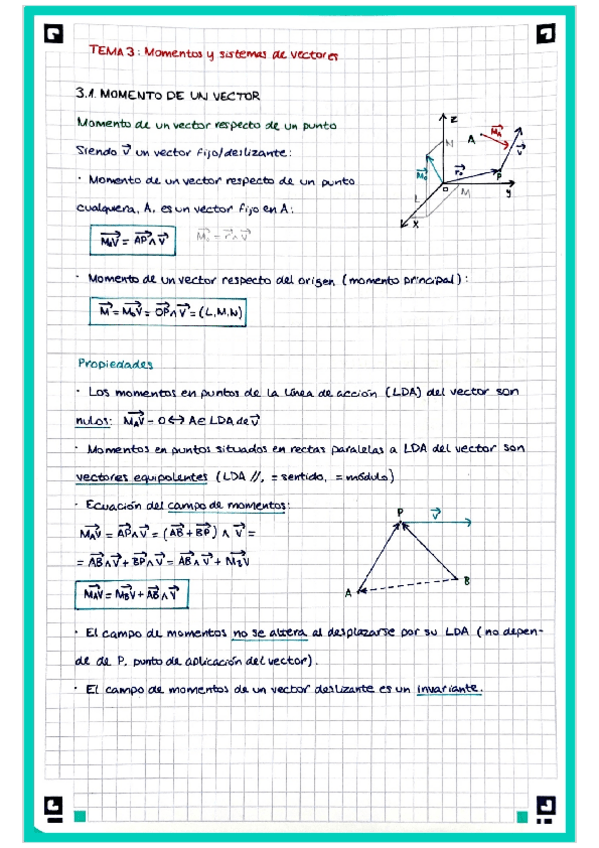 TEMA 3: Momentos y sistemas de vectores
3.1. MOMENTO DE UN VECTOR
Momento de un vector respecto de un punto
Siendo v⃗ un vector fijo/deslizante:
· Momento de un vector respecto de un punto
cualquiera, A, es un vector fijo en A:
M⃗ₐv = AP⃗ ∧ v⃗
M⃗ₒ = r⃗ ∧ v⃗
z
N
A
M⃗ₐ
v⃗
M⃗ₒ
r⃗ₒ
P
O
L
M
y
x
· Momento de un vector respecto del origen (momento principal):
M⃗ = M⃗ₒv = OP⃗ ∧ v⃗ = (L,M,N)
Propiedades
· Los momentos en puntos de la línea de acción (LDA) del vector son
nulos: M⃗ₐv = 0 ↔ A ∈ LDA de v⃗
· Momentos en puntos situados en rectas paralelas a LDA del vector son
vectores equipolentes (LDA //, = sentido, = módulo)
· Ecuación del campo de momentos:
M⃗ₐv = AP⃗ ∧ v⃗ = (AB⃗ + BP⃗) ∧ v⃗ =
= AB⃗ ∧ v⃗ + BP⃗ ∧ v⃗ = AB⃗ ∧ v⃗ + M⃗_Bv
M⃗ₐv = M⃗_Bv + AB⃗ ∧ v⃗
P
v⃗
A
B
· El campo de momentos no se altera al desplazarse por su LDA (no depen-
de de P, punto de aplicación del vector).
· El campo de momentos de un vector deslizante es un invariante.